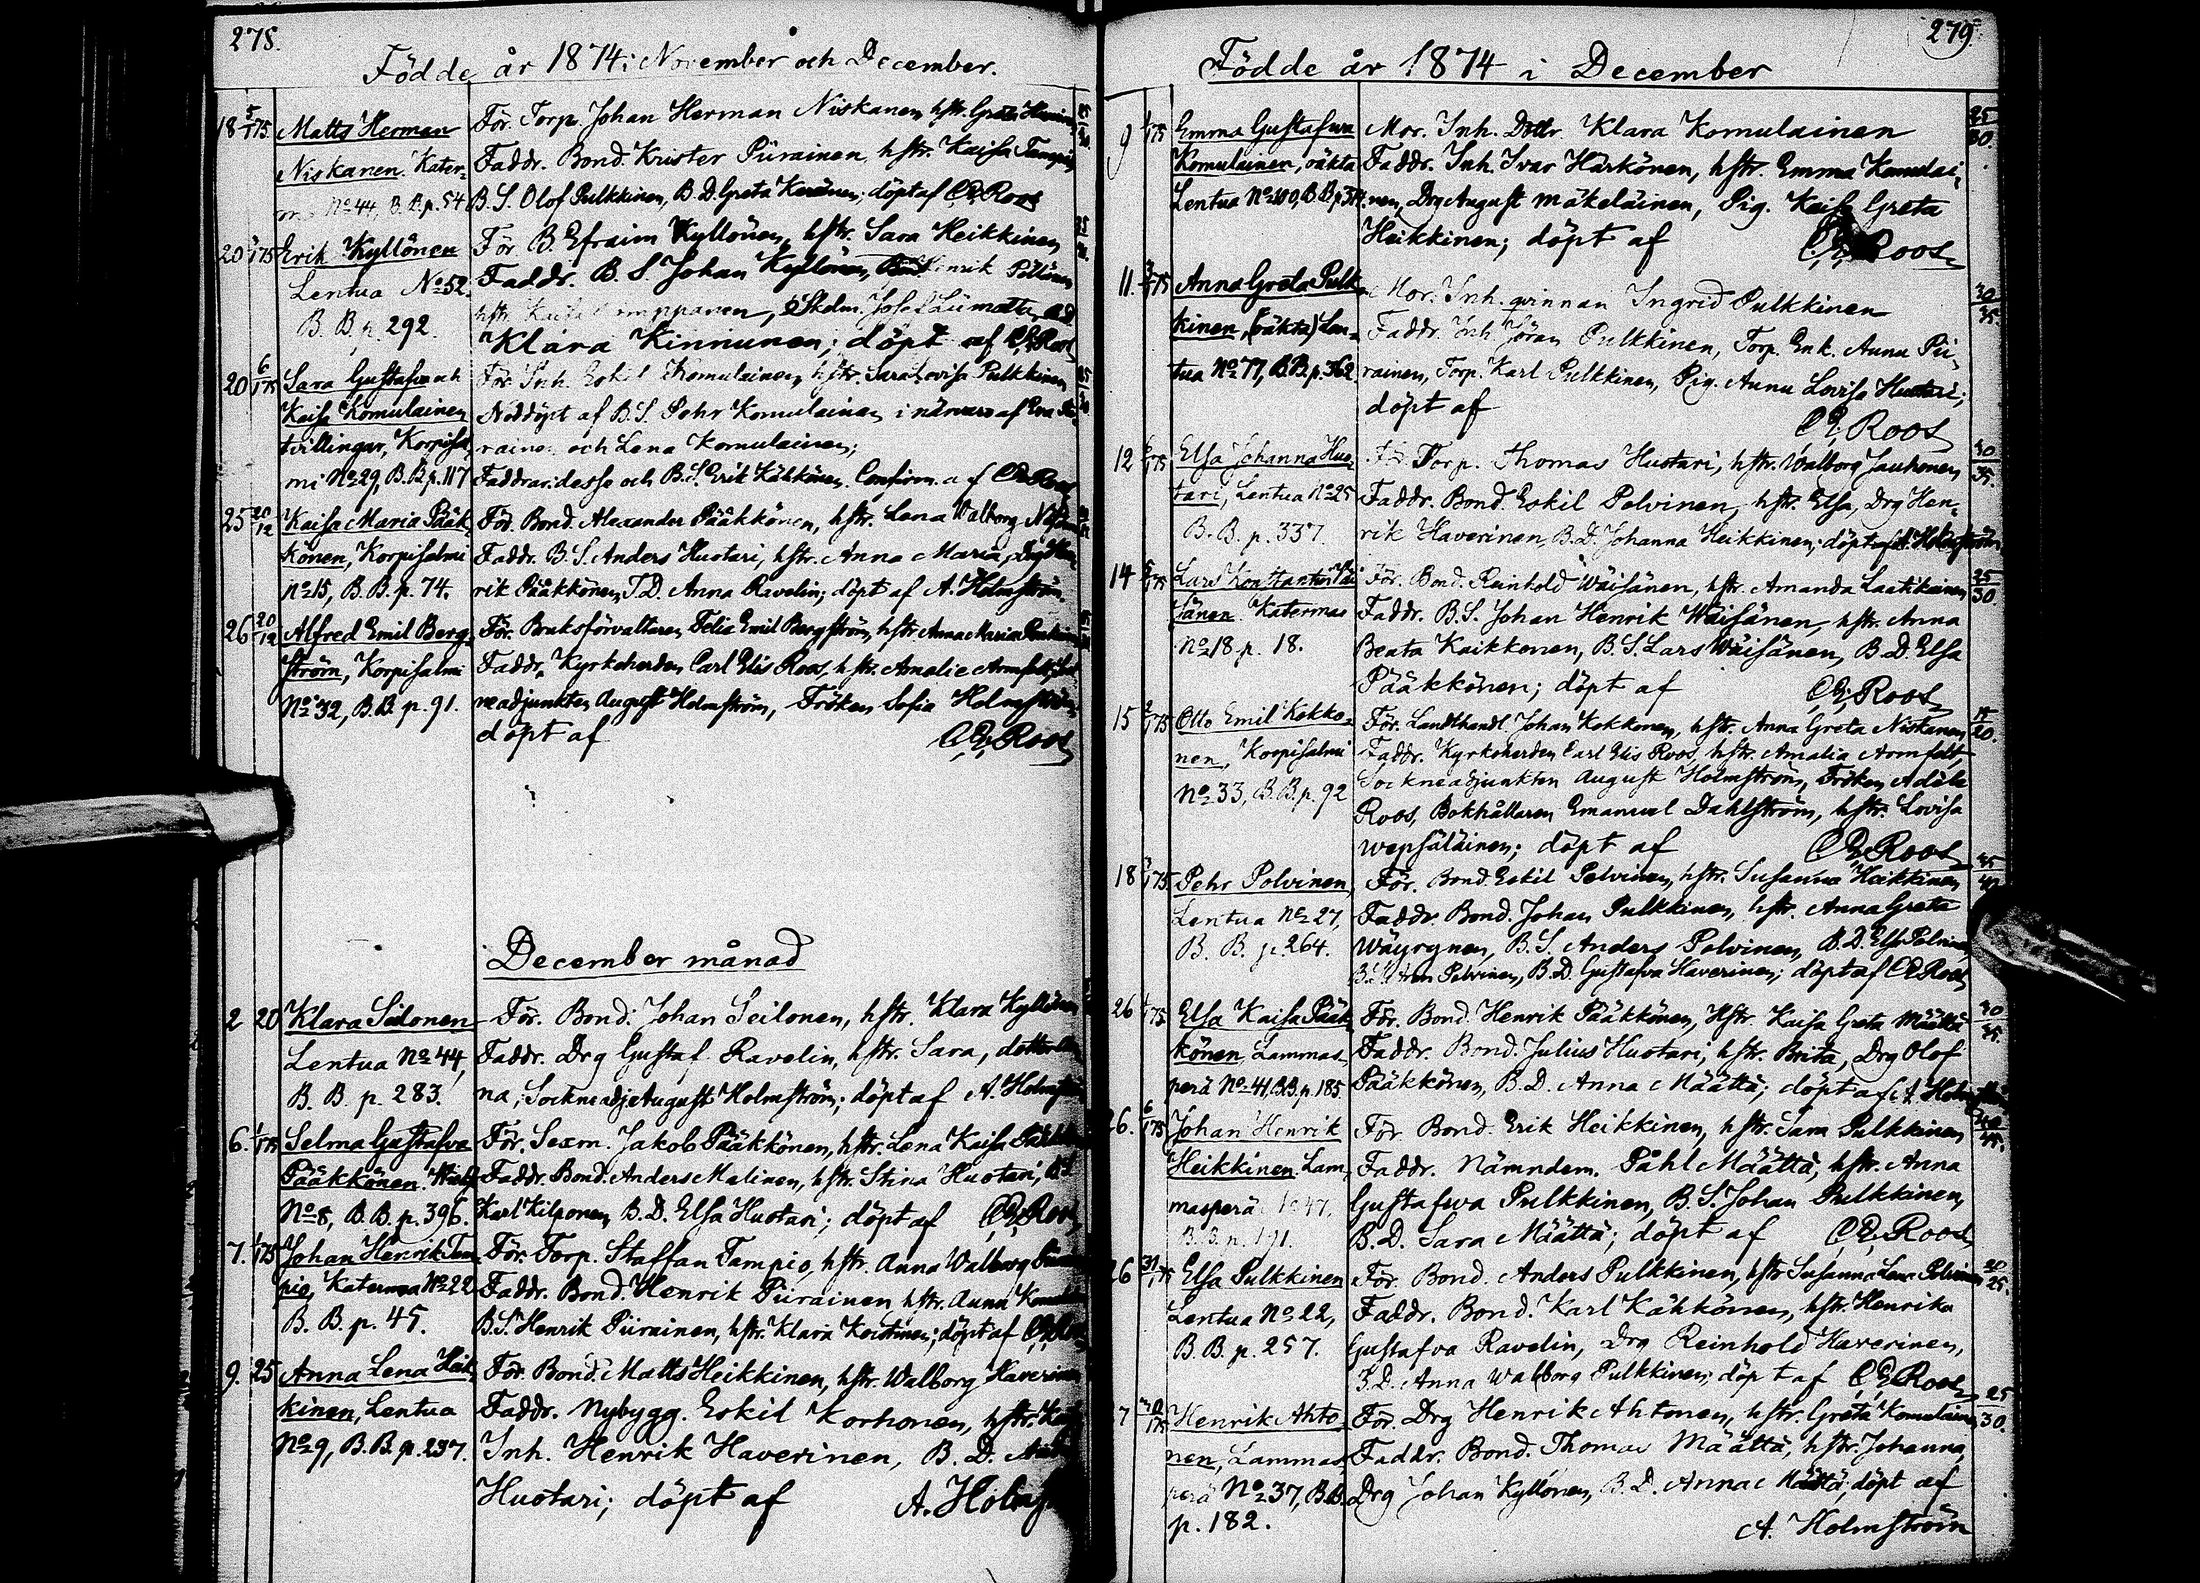 278.
Födde år 1874 i November och December.
18 5/1 75 Matts Herman För. Torp. Johan Herman Niskanen, hstr. Greta
Niskanen. Kater- Faddr. Bond. Krister Piirainen, hstr. Kaisa Tampio,
ma No 44, B. B. p. 54 B. S. Olof Pulkkinen, B. D. Greta Keränen; döpt af C. E. Roos
20 /1 75 Erik Kyllönen För B. Efraim Kyllönen, hstr. Sara Heikkinen
Lentua No 52. Faddr. B. S. Johan Kyllönen, Henrik
B. B. p. 292. hstr. Kaisa Skolm. Josef
Klara Kinnunen; döpt af C. E. Roos
20 6/1 75 Sara Gustafva och För. Inh. Eskil Komulainen, hstr. Sara Lovisa Pulkkinen
Kaisa Komulainen Nöddöpt af B. S. Pehr Komulainen i närvaro af Eva
tvillingar, Korpisal- rainen och Lena Komulainen;
mi No 29, B. B. p. 117 Faddrar: desse och B. S. Erik Kähkönen. Confirm. af C. E. Roos
25 20/12 Kaisa Maria Pääk- För. Bond. Alexander Pääkkönen, hstr. Lena Walborg
könen, Korpisalmi Faddr. B. S. Anders Huotari, hstr. Anna Maria, Drg Hen-
No 15, B. B. p. 74. rik Pääkkönen, T. D. Anna Ravelin; döpt af A. Holmström.
26 20/12 Alfred Emil Berg- För. Bruksförvaltaren Felix Emil Bergström, hstr Anna Maria
ström, Korpisalmi Faddr. Kyrkoherden Carl Elis Roos, hstr. Amalie Armfelt,
No 32, B. B. p. 91. neadjunkten August Holmström, Fröken Sofia Holmström
döpt af C. E. Roos
December månad
2 20 Klara Seilonen För. Bond. Johan Seilonen, hstr. Klara Kyllönen
Lentua No 44, Faddr. Drg Gustaf Ravelin, hstr. Sara, dotter
B. B. p. 283. na, Sockneadj. August Holmström; döpt af A. Holmström
6. 1/1 75 Selma Gustafva För. Sexm. Jakob Pääkkönen, hstr. Lena Kaisa
Pääkkönen. Faddr. Bond. Anders Malinen, hstr. Stina Huotari,
No 8, B. B. p. 396. Karl Kilponen, B. D. Elsa Huotari; döpt af C. E. Roos
7. 1/1 75 Johan Henrik Tam- För. Torp. Staffan Tampio, hstr. Anna Walborg
pio, Katerma No 22 Faddr. Bond. Henrik Piirainen, hstr. Anna
B. B. p. 45. B. S. Henrik Piirainen, hstr. Klara; döpt af C. E. Roos
9. 25 Anna Lena Heik- För. Bond. Matts Heikkinen, hstr. Walborg Haverinen
kinen, Lentua Faddr. Nybygg. Eskil Korhonen, hstr.
No 9, B. B. p. 237. Inh. Henrik Haverinen, B. D.
Huotari; döpt af A. Holmström
279
Födde år 1874 i December
9 1/1 75 Emma Gustafva Mor. Inh. Dottr. Klara Komulainen 25/30.
Komulainen, oäkta Faddr. Inh. Ivar Härkönen, hstr. Emma Komulai-
Lentua No 100, B. B. p. nen, Drg August Mäkeläinen, Pig. Kaisa Greta
Heikkinen; döpt af C. E. Roos
11. /1 75 Anna Greta Pulk- Mor. Inh. qvinnan Ingrid Pulkkinen 30/35.
kinen (oäkta) Len- Faddr. Inh. Jöran Pulkkinen, Torp. Enk. Anna Pii-
tua No 77, B. B. p. 362. rainen, Torp. Karl Pulkkinen, Pig. Anna Lovisa Huotari;
döpt af C. E. Roos
12 6/1 75 Elsa Johanna Huo- För Torp. Thomas Huotari, hstr. Walborg Jauhonen 30/35.
tari, Lentua No 25 Faddr. Bond. Eskil Polvinen, hstr. Elsa, Drg Hen-
B. B. p. 337. rik Haverinen, B. D. Johanna Heikkinen; döpt af A. Holmström
14 5/1 75 Lars Konstantin Wäi- För. Bond. Reinhold Wäisänen, hstr. Amanda Laatikainen 25/30.
sänen Katerma Faddr. B. S. Johan Henrik Wäisänen, hstr. Anna
No 18 p. 18. Beata Kaikkonen, B. S. Lars Wäisänen, B. D. Elsa
Pääkkönen; döpt af C. E. Roos
15 2/1 75 Otto Emil Kokko- För. Landthandl Johan Kokkonen, hstr. Anna Greta Niskanen /20.
nen, Korpisalmi Faddr. Kyrkoherden Carl Elis Roos, hstr. Amalia Armfelt,
No 33, B. B. p. 92 Sockneadjunkten August Holmström, Fröken Adéle
Roos, Bokhållaren Emanuel Dahlström, hstr. Lovisa
Wepsäläinen; döpt af C. E. Roos
18 /1 75 Pehr Polvinen För. Bond. Eskil Polvinen, hstr. Susanna Heikkinen 35/40
Lentua No 27, Faddr. Bond. Johan Pulkkinen, hstr. Anna Greta
B. B. p. 264. Wäyrynen, B. S. Anders Polvinen, B. D. Elsa Polvinen
Polvinen, B. D. Gustafva Haverinen; döpt af C. E. Roos
26 1/1 75 Elsa Kaisa Pääk- För. Bond. Henrik Pääkkönen, Hstr. Kaisa Greta Määttä 30/35.
könen, Lammas- Faddr. Bond. Julius Huotari, hstr. Brita, Drg Olof
perä No 41, B. B. p. 185. Pääkkönen, B. D. Anna Määttä; döpt af A. Holmström
26. 6/1 75 Johan Henrik För. Bond. Erik Heikkinen, hstr. Sara Pulkkinen 40/45.
Heikkinen. Lam- Faddr. Nämndem. Påhl Määttä, hstr. Anna
masperä No 47, Gustafva Pulkkinen, B. S. Johan Pulkkinen,
B. B. p. 191. B. D. Sara Määttä; döpt af C. E. Roos
26 31/1 75 Elsa Pulkkinen För. Bond. Anders Pulkkinen, hstr Susanna Lena Polvinen 20/25.
Lentua No 22, Faddr. Bond. Karl Kähkönen, hstr. Henrika
B. B. p. 257. Gustafva Ravelin, Drg Reinhold Haverinen,
B. D. Anna Walborg Pulkkinen; döpt af C. E. Roos
7 /1 75 Henrik Ahto- För. Drg Henrik Ahtonen, hstr. Greta Komulainen 25/30.
nen, Lammas- Faddr. Bond. Thomas Määttä, hstr. Johanna,
perä No 37, B. B. Drg Johan Kyllönen, B. D. Anna Määttä; döpt af
p. 182. A. Holmström